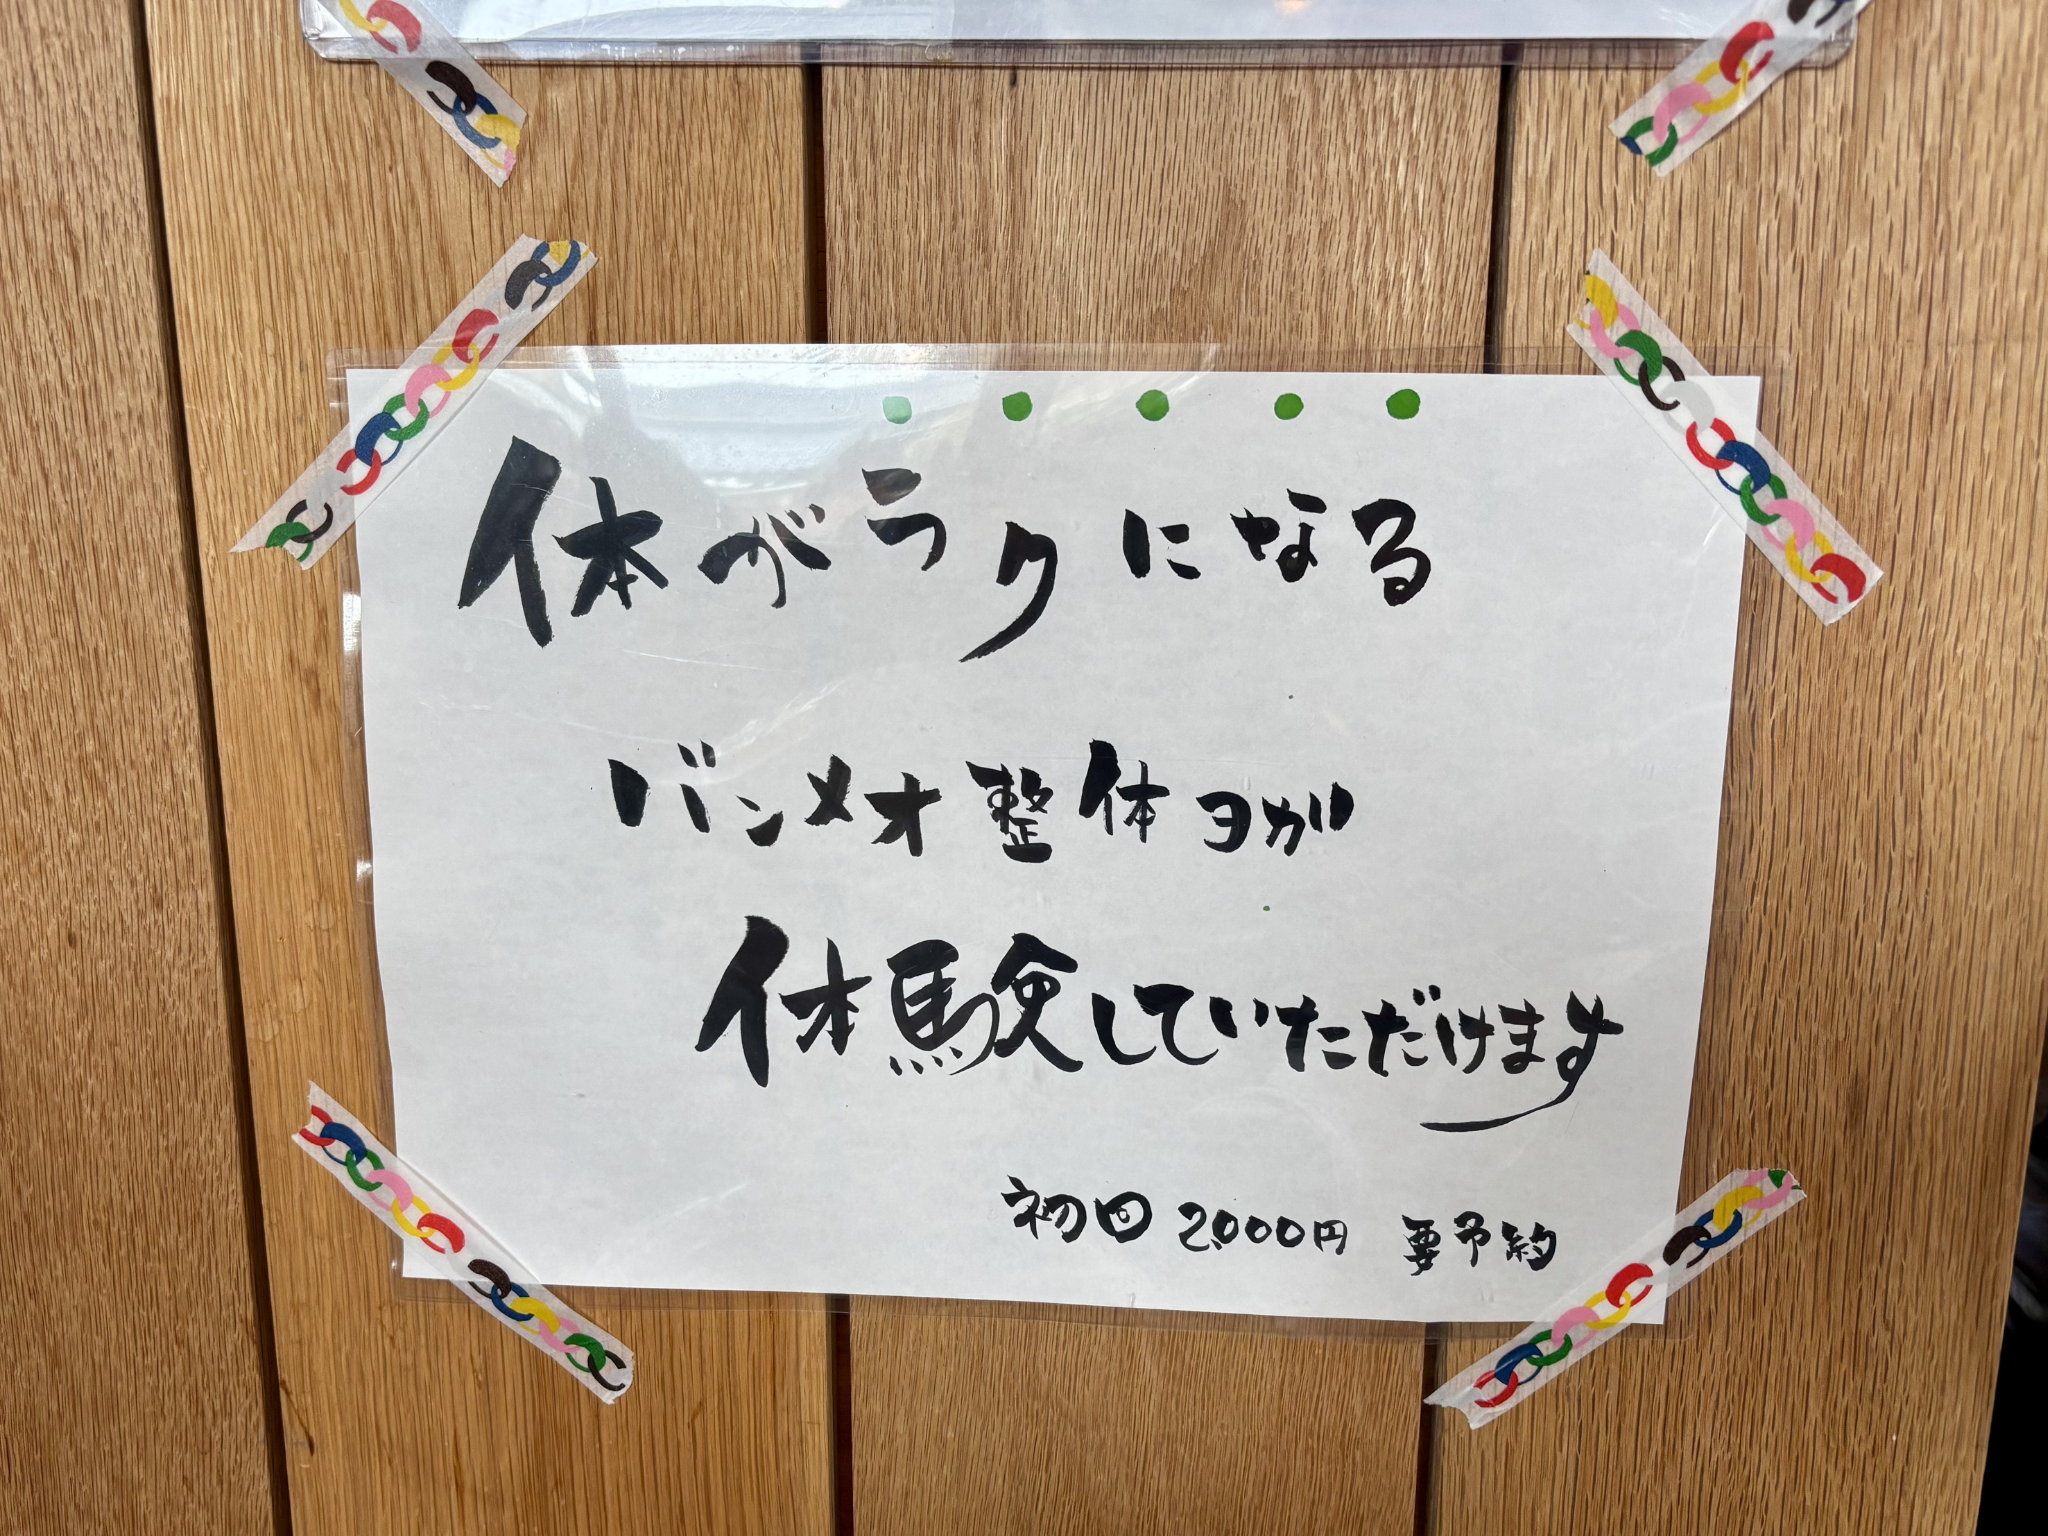 体がラクになる
バンメオ整体ヨガ
体験していただけます
初回 2,000円 要予約